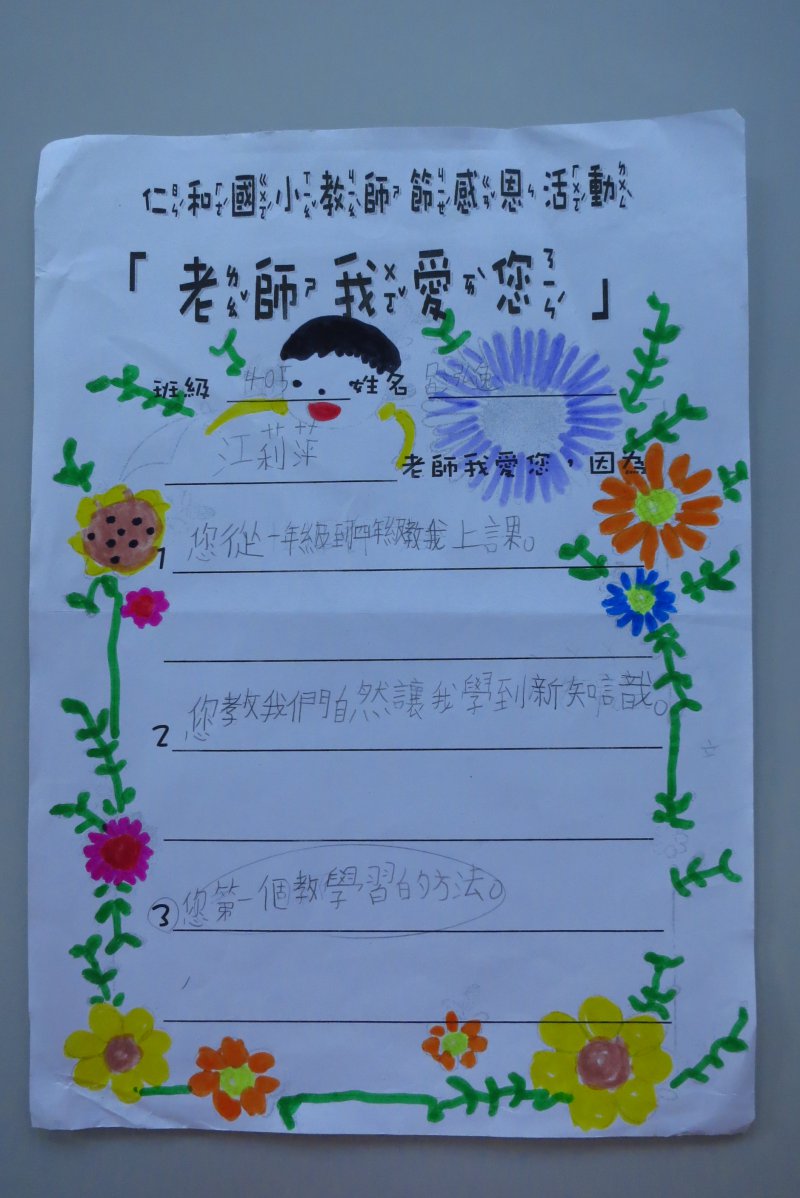 仁和國小教師節感恩活動
「老師我愛您」
班級 405 姓名
江莉萍 老師我愛您，因為
1 您從一年級到四年級教我上課。
2 您教我們自然讓我學到新知識。
3 您第一個教學習的方法。